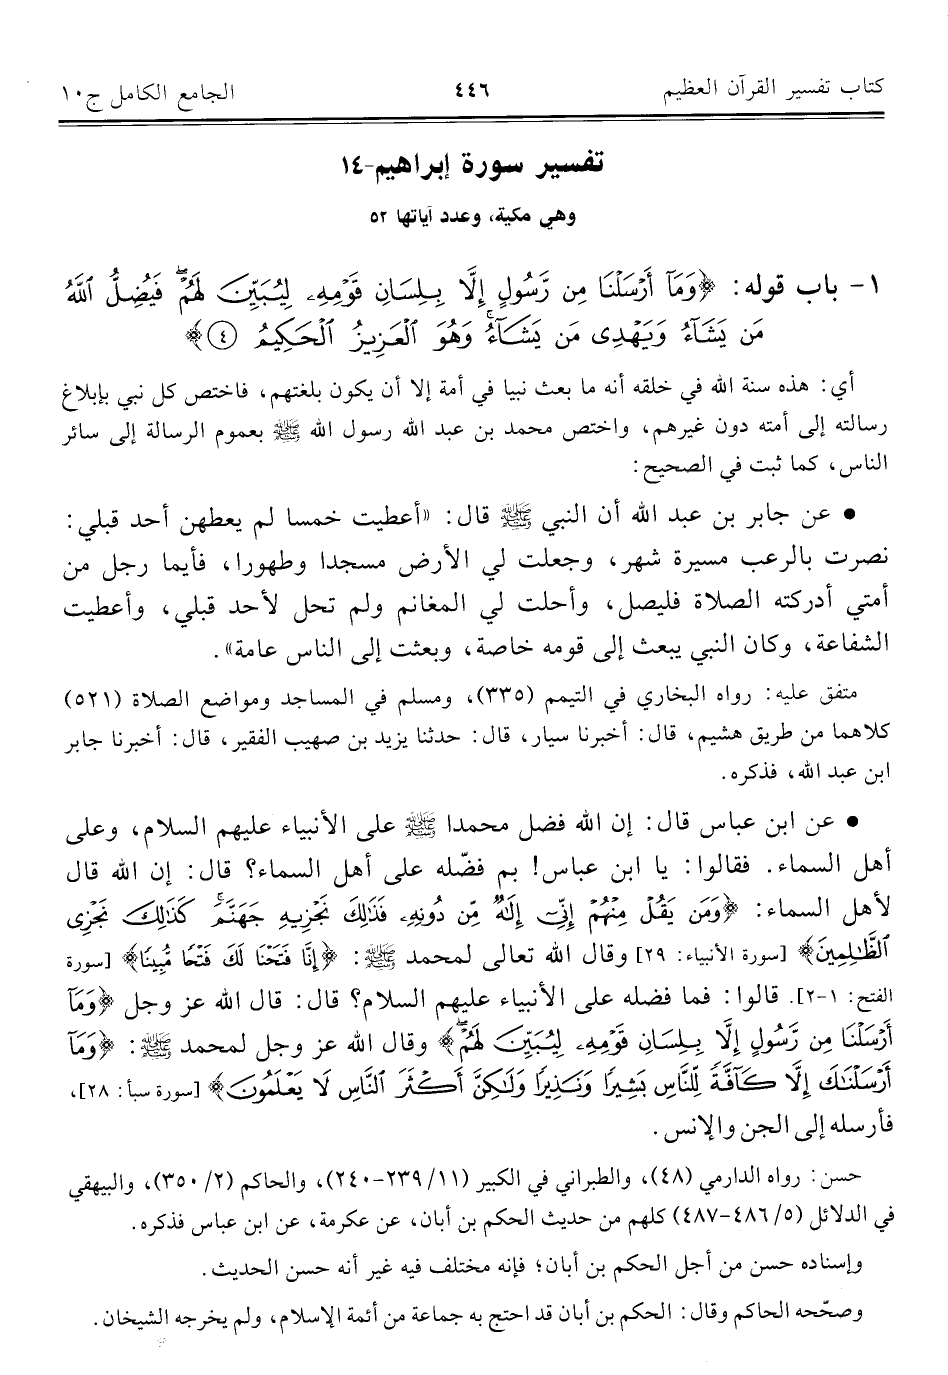 كتاب تفسير القرآن العظيم ٤٤٦ الجامع الكامل ج١٠
تفسير سورة إبراهيم-١٤
وهي مكية، وعدد آياتها ٥٢
١- باب قوله: ﴿وَمَآ أَرْسَلْنَا مِن رَّسُولٍ إِلَّا بِلِسَانِ قَوْمِهِۦ لِيُبَيِّنَ لَهُمْۖ فَيُضِلُّ ٱللَّهُ
مَن يَشَآءُ وَيَهْدِى مَن يَشَآءُۚ وَهُوَ ٱلْعَزِيزُ ٱلْحَكِيمُ ﴿٤﴾﴾
أي: هذه سنة الله في خلقه أنه ما بعث نبيا في أمة إلا أن يكون بلغتهم، فاختص كل نبي بإبلاغ
رسالته إلى أمته دون غيرهم، واختص محمد بن عبد الله رسول الله ﷺ بعموم الرسالة إلى سائر
الناس، كما ثبت في الصحيح:
• عن جابر بن عبد الله أن النبي ﷺ قال: «أعطيت خمسا لم يعطهن أحد قبلي:
نصرت بالرعب مسيرة شهر، وجعلت لي الأرض مسجدا وطهورا، فأيما رجل من
أمتي أدركته الصلاة فليصل، وأحلت لي المغانم ولم تحل لأحد قبلي، وأعطيت
الشفاعة، وكان النبي يبعث إلى قومه خاصة، وبعثت إلى الناس عامة».
متفق عليه: رواه البخاري في التيمم (٣٣٥)، ومسلم في المساجد ومواضع الصلاة (٥٢١)
كلاهما من طريق هشيم، قال: أخبرنا سيار، قال: حدثنا يزيد بن صهيب الفقير، قال: أخبرنا جابر
ابن عبد الله، فذكره.
• عن ابن عباس قال: إن الله فضل محمدا ﷺ على الأنبياء عليهم السلام، وعلى
أهل السماء. فقالوا: يا ابن عباس! بم فضّله على أهل السماء؟ قال: إن الله قال
لأهل السماء: ﴿وَمَن يَقُلْ مِنْهُمْ إِنِّىٓ إِلَٰهٌ مِّن دُونِهِۦ فَذَٰلِكَ نَجْزِيهِ جَهَنَّمَۚ كَذَٰلِكَ نَجْزِى
ٱلظَّٰلِمِينَ﴾ [سورة الأنبياء: ٢٩] وقال الله تعالى لمحمد ﷺ: ﴿إِنَّا فَتَحْنَا لَكَ فَتْحًا مُّبِينًا﴾ [سورة
الفتح: ١-٢]. قالوا: فما فضله على الأنبياء عليهم السلام؟ قال: قال الله عز وجل ﴿وَمَآ
أَرْسَلْنَا مِن رَّسُولٍ إِلَّا بِلِسَانِ قَوْمِهِۦ لِيُبَيِّنَ لَهُمْۖ﴾ وقال الله عز وجل لمحمد ﷺ: ﴿وَمَآ
أَرْسَلْنَٰكَ إِلَّا كَآفَّةً لِّلنَّاسِ بَشِيرًا وَنَذِيرًا وَلَٰكِنَّ أَكْثَرَ ٱلنَّاسِ لَا يَعْلَمُونَ﴾ [سورة سبأ: ٢٨]،
فأرسله إلى الجن والإنس.
حسن: رواه الدارمي (٤٨)، والطبراني في الكبير (١١/ ٢٣٩-٢٤٠)، والحاكم (٢/ ٣٥٠)، والبيهقي
في الدلائل (٥/ ٤٨٦-٤٨٧) كلهم من حديث الحكم بن أبان، عن عكرمة، عن ابن عباس فذكره.
وإسناده حسن من أجل الحكم بن أبان؛ فإنه مختلف فيه غير أنه حسن الحديث.
وصحّحه الحاكم وقال: الحكم بن أبان قد احتج به جماعة من أئمة الإسلام، ولم يخرجه الشيخان.